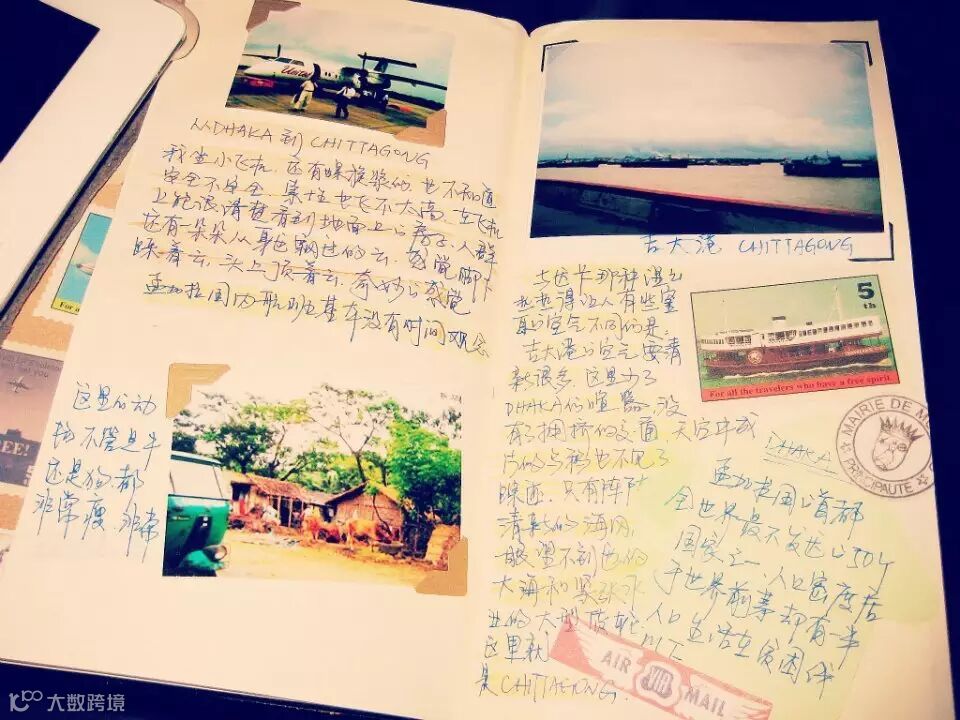 United
从DHAKA 到 CHITTAGONG
我坐小飞机,还有螺旋桨的,也不知道
安全不安全,索性也飞不太高,在飞机
上能很清楚看到地面上的房子,人群
还有一朵朵从身边飘过的云,感觉脚下
踩着云,头上顶着云,奇妙的感觉
孟加拉国内航班基本没有时间观念
For a
EE!
这里的动
物不管是牛
还是狗,都
非常瘦,非常
吉大港 CHITTAGONG
与达卡那种湿湿
热热得让人有些窒
息的空气不同的是,
吉大港的空气要清
新很多,这里少了
DHAKA的喧嚣,没
有了拥挤的交通,天空中成
片的乌鸦也不见了
踪迹,只有阵阵
清新的海风,
一眼望不到边的
大海和紧张作
业的大型货轮
这里就
是CHITTAGONG.
5
th
For all the travelers who have a free spirit.
MAIRIE DE M
PRINCIPAUTE
DHAKA
孟加拉国的首都
全世界最不发达的50个
国家之一,人口密度居
于世界前茅却有一半
人口生活在贫困线
以下
AIR MAIL
大数跨境